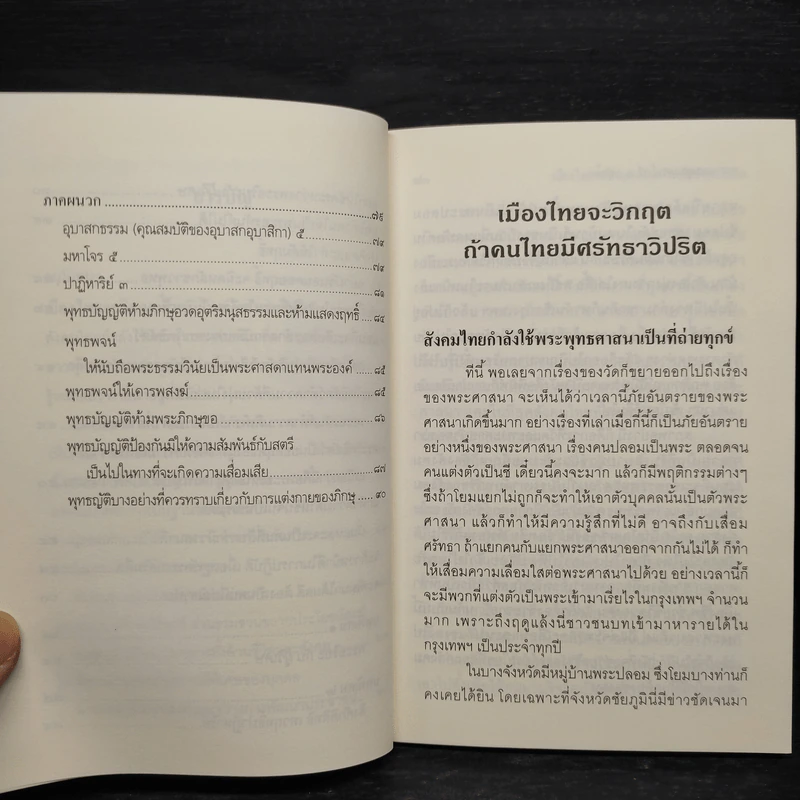 ภาคผนวก ................................ ๗๖
อุบาสกธรรม (คุณสมบัติของอุบาสกอุบาสิกา) ๕ ................ ๗๙
มหาโจร ๕ ................ ๗๙
ปาฏิหาริย์ ๓ ................ ๘๑
พุทธบัญญัติห้ามภิกษุอวดอุตริมนุสธรรมและห้ามแสดงฤทธิ์ .... ๘๔
พุทธพจน์
ให้นับถือพระธรรมวินัยเป็นพระศาสดาแทนพระองค์ ..... ๘๕
พุทธพจน์ให้เคารพสงฆ์ ................ ๘๕
พุทธบัญญัติห้ามพระภิกษุขอ ................ ๘๖
พุทธบัญญัติป้องกันมิให้ความสัมพันธ์กับสตรี
เป็นไปในทางที่จะเกิดความเสื่อมเสีย ................ ๘๗
พุทธบัญญัติบางอย่างที่ควรทราบเกี่ยวกับการแต่งกายของภิกษุ .... ๙๐
เมืองไทยจะวิกฤต
ถ้าคนไทยมีศรัทธาวิปริต
สังคมไทยกำลังใช้พระพุทธศาสนาเป็นที่ถ่ายทุกข์
ทีนี้ พอเลยจากเรื่องของวัดก็ขยายออกไปถึงเรื่อง
ของพระศาสนา จะเห็นได้ว่าเวลานี้ภัยอันตรายของพระ
ศาสนาเกิดขึ้นมาก อย่างเรื่องที่เล่าเมื่อกี้นี้ก็เป็นภัยอันตราย
อย่างหนึ่งของพระศาสนา เรื่องคนปลอมเป็นพระ ตลอดจน
คนแต่งตัวเป็นชี เดี๋ยวนี้คงจะมาก แล้วก็มีพฤติกรรมต่างๆ
ซึ่งถ้าโยมแยกไม่ถูกก็จะทำให้เอาตัวบุคคลนั้นเป็นตัวพระ
ศาสนา แล้วก็ทำให้มีความรู้สึกที่ไม่ดี อาจถึงกับเสื่อม
ศรัทธา ถ้าแยกคนกับแยกพระศาสนาออกจากกันไม่ได้ ก็ทำ
ให้เสื่อมความเลื่อมใสต่อพระศาสนาไปด้วย อย่างเวลานี้ก็
จะมีพวกที่แต่งตัวเป็นพระเข้ามาเรี่ยไรในกรุงเทพฯ จำนวน
มาก เพราะถึงฤดูแล้งนี้ชาวชนบทเข้ามาหารายได้ใน
กรุงเทพฯ เป็นประจำทุกปี
ในบางจังหวัดมีหมู่บ้านพระปลอม ซึ่งโยมบางท่านก็
คงเคยได้ยิน โดยเฉพาะที่จังหวัดชัยภูมินี่มีข่าวชัดเจนมา